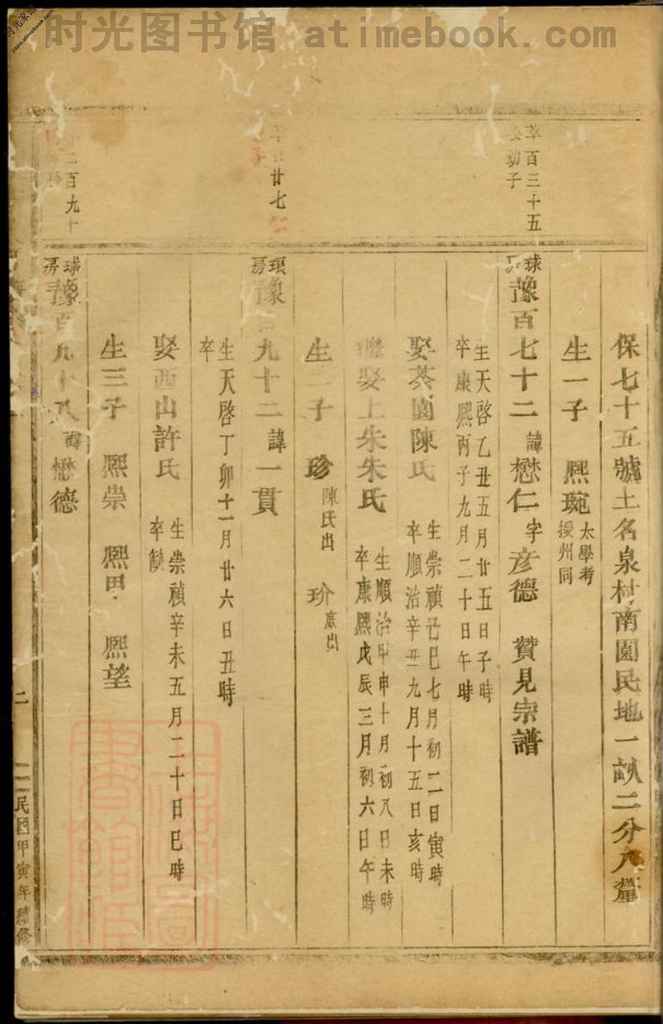 时光图书馆 atimebook.com
莘百三十五
幼子
廿七
二百九十
保七十五號土名泉村南園民地一畝二分八釐
生一子 熙琬 太學考授州同
球房 豫百七十二 諱懋仁 字彥德 贊見宗譜
生天啓乙丑五月廿五日子時
卒康熙丙子九月二十日午時
娶茶園陳氏 生崇禎己巳七月初二日寅時
卒順治辛丑九月十五日亥時
娶上朱朱氏 生順治甲申十月初八日未時
卒康熙戊辰三月初六日午時
生二子 珍 陳氏出 玠
房 豫 九十二 諱一貫
生天啓丁卯十一月廿六日丑時
卒
娶西山許氏 生崇禎辛未五月二十日巳時
卒
生三子 熙崇 熙甲 熙望
球房 豫百九十 諱懋德
二
民國甲寅年種修